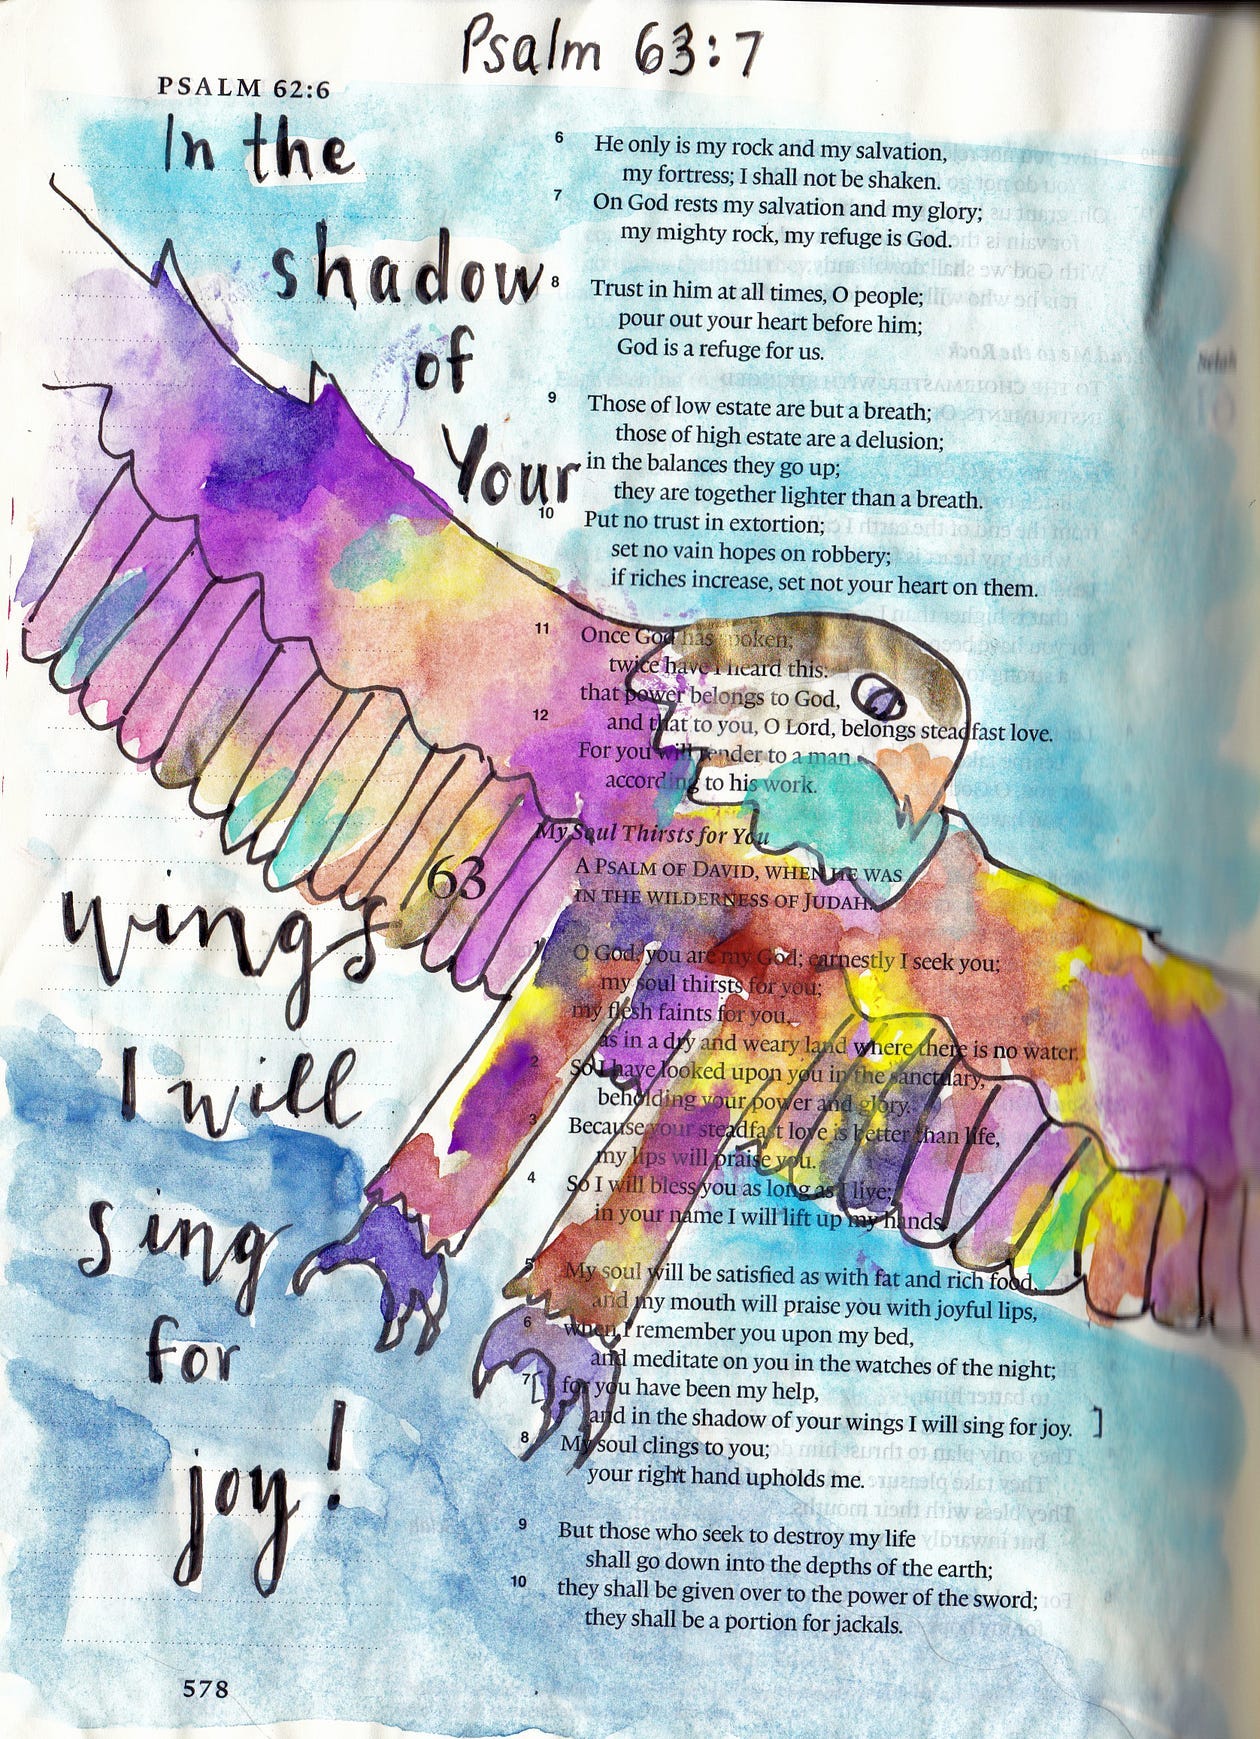 Psalm 63:7
PSALM 62:6
In the
shadow
of
Your
wings
I will
sing
for
joy!
6 He only is my rock and my salvation,
my fortress; I shall not be shaken.
7 On God rests my salvation and my glory;
my mighty rock, my refuge is God.
8 Trust in him at all times, O people;
pour out your heart before him;
God is a refuge for us.
9 Those of low estate are but a breath;
those of high estate are a delusion;
in the balances they go up;
they are together lighter than a breath.
10 Put no trust in extortion;
set no vain hopes on robbery;
if riches increase, set not your heart on them.
11 Once God has spoken;
twice have I heard this:
that power belongs to God,
12 and that to you, O Lord, belongs steadfast love.
For you will render to a man
according to his work.
My Soul Thirsts for You
63 A PSALM OF DAVID, WHEN HE WAS
IN THE WILDERNESS OF JUDAH.
1 O God, you are my God; earnestly I seek you;
my soul thirsts for you;
my flesh faints for you,
as in a dry and weary land where there is no water.
2 So I have looked upon you in the sanctuary,
beholding your power and glory.
3 Because your steadfast love is better than life,
my lips will praise you.
4 So I will bless you as long as I live;
in your name I will lift up my hands.
5 My soul will be satisfied as with fat and rich food,
and my mouth will praise you with joyful lips,
6 when I remember you upon my bed,
and meditate on you in the watches of the night;
7 [for you have been my help,
and in the shadow of your wings I will sing for joy. ]
8 My soul clings to you;
your right hand upholds me.
9 But those who seek to destroy my life
shall go down into the depths of the earth;
10 they shall be given over to the power of the sword;
they shall be a portion for jackals.
578